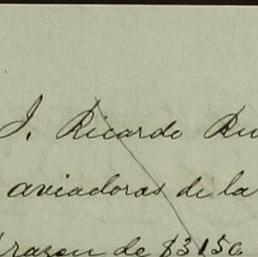 J. Ricardo Ru
aviadoras de la
razon de $3150